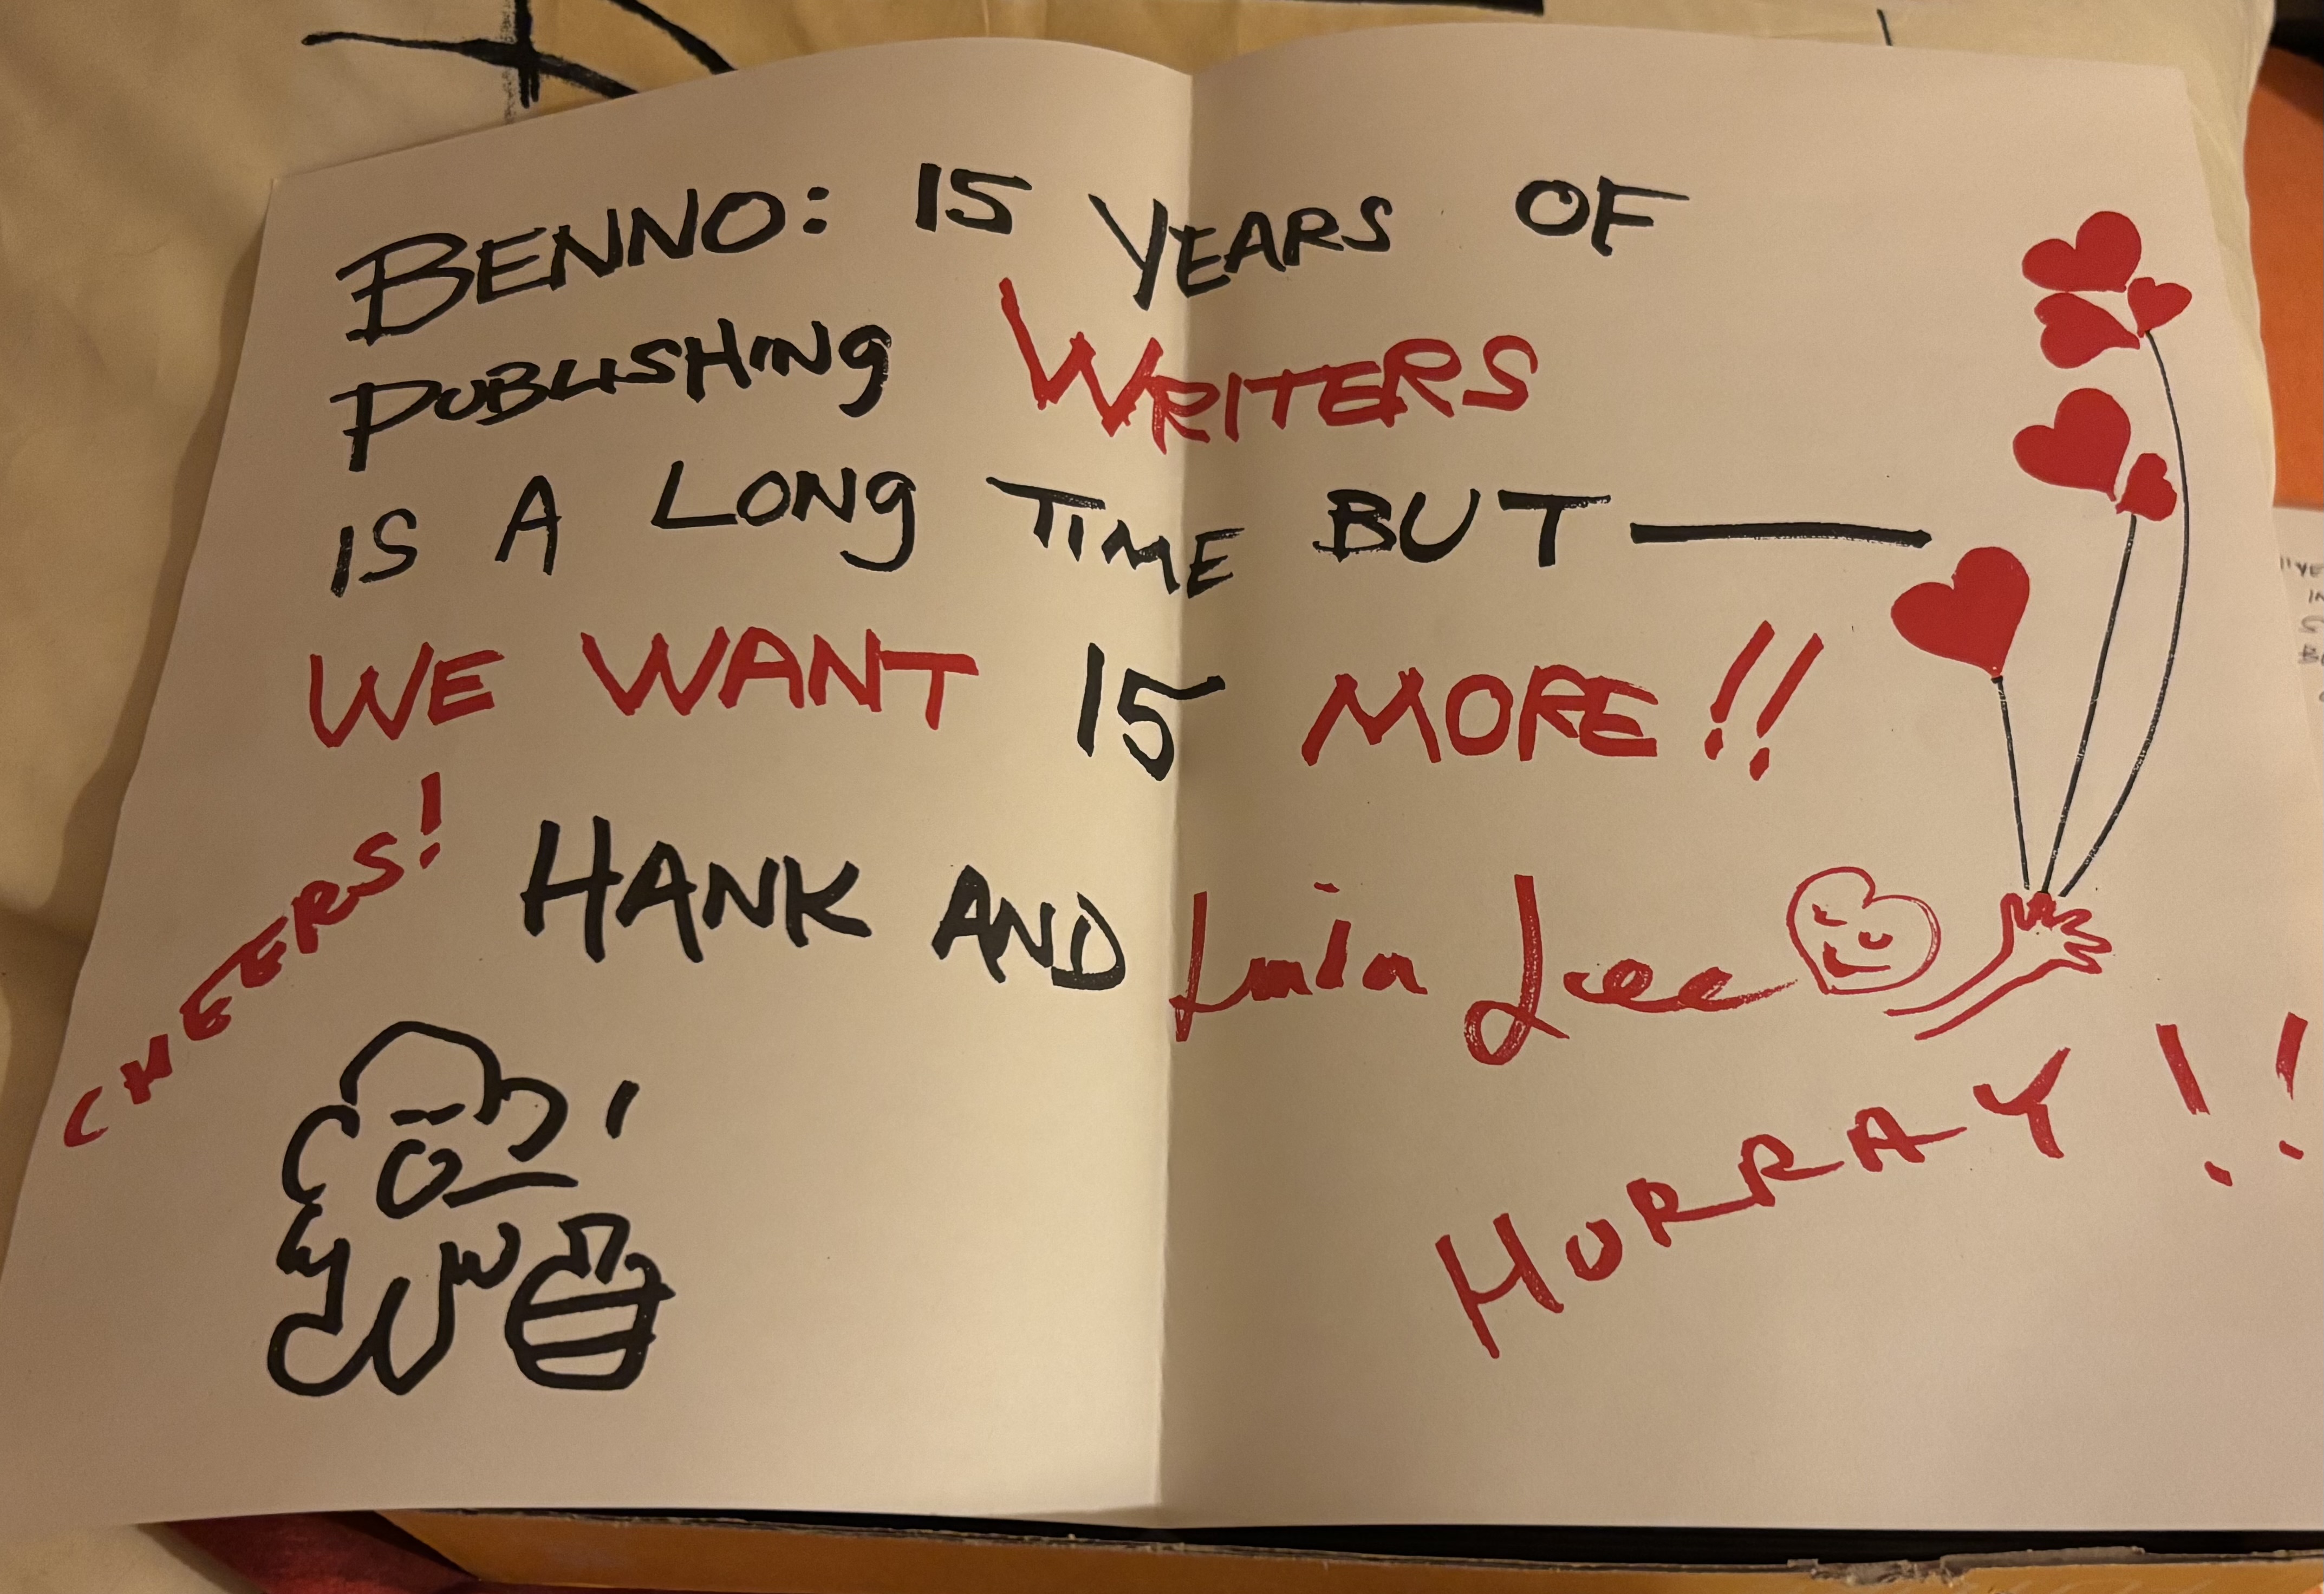 BENNO: 15 YEARS OF
PUBLISHING WRITERS
IS A LONG TIME BUT —
WE WANT 15 MORE!!
CHEERS!
HANK AND Linda Lee
HURRAY!!